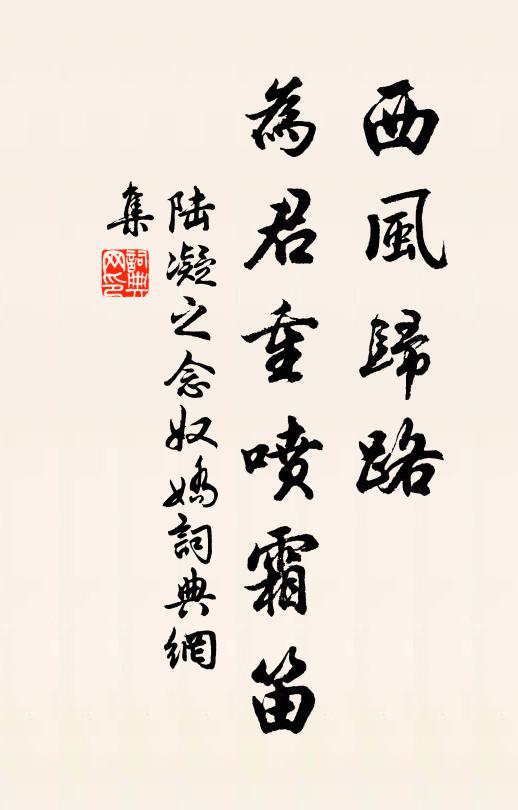 西風歸路
為君重噴霜笛
陸凝之念奴嬌詞典網
集
詞典
网印